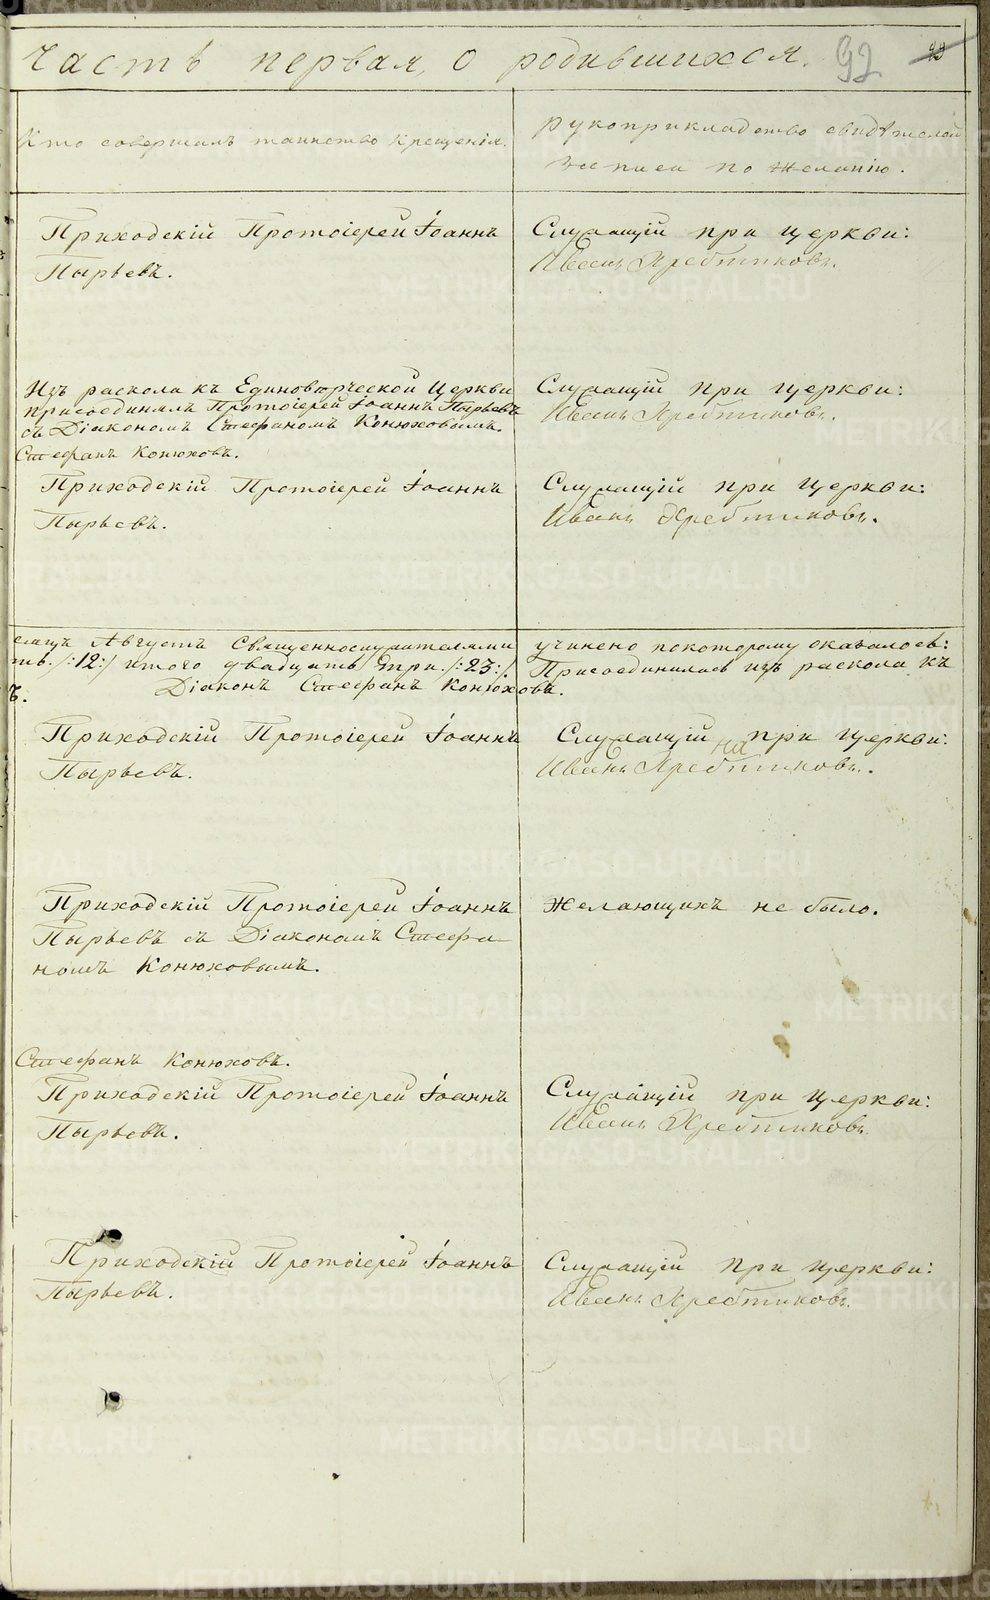 Часть первая, о родившихся. 92
Кто совершалъ таинство крещенія.
рукоприкладство свидѣтелей
записи по желанію.
Приходскій Протоіерей Іоаннъ
Пырьевъ.
Служащій при церкви:
Иванъ Хребтиковъ.
Изъ раскола къ Единовѣрческой Церкви
присоединялъ Протоіерей Іоаннъ Пырьевъ
съ Діакономъ Стефаномъ Конюховымъ.
Стефанъ Конюховъ.
Служащій при церкви:
Иванъ Хребтиковъ.
Приходскій Протоіерей Іоаннъ
Пырьевъ.
Служащій при церкви:
Иванъ Хребтиковъ.
Августъ Священнослужителями учинено покоторому оказалось:
/:12:/ итого двадцать три. /:23:/ Присоединилась изъ раскола къ
Діаконъ Стефанъ Конюховъ.
Приходскій Протоіерей Іоаннъ
Пырьевъ.
Служащій при церкви:
на
Иванъ Хребтиковъ.
Приходскій Протоіерей Іоаннъ
Пырьевъ съ Діакономъ Стефа-
номъ Конюховымъ.
Желающихъ не было.
Стефанъ Конюховъ.
Приходскій Протоіерей Іоаннъ
Пырьевъ.
Служащій при церкви:
Иванъ Хребтиковъ.
Приходскій Протоіерей Іоаннъ
Пырьевъ.
Служащій при церкви:
Иванъ Хребтиковъ.
METRIKI.GASO-URAL.RU